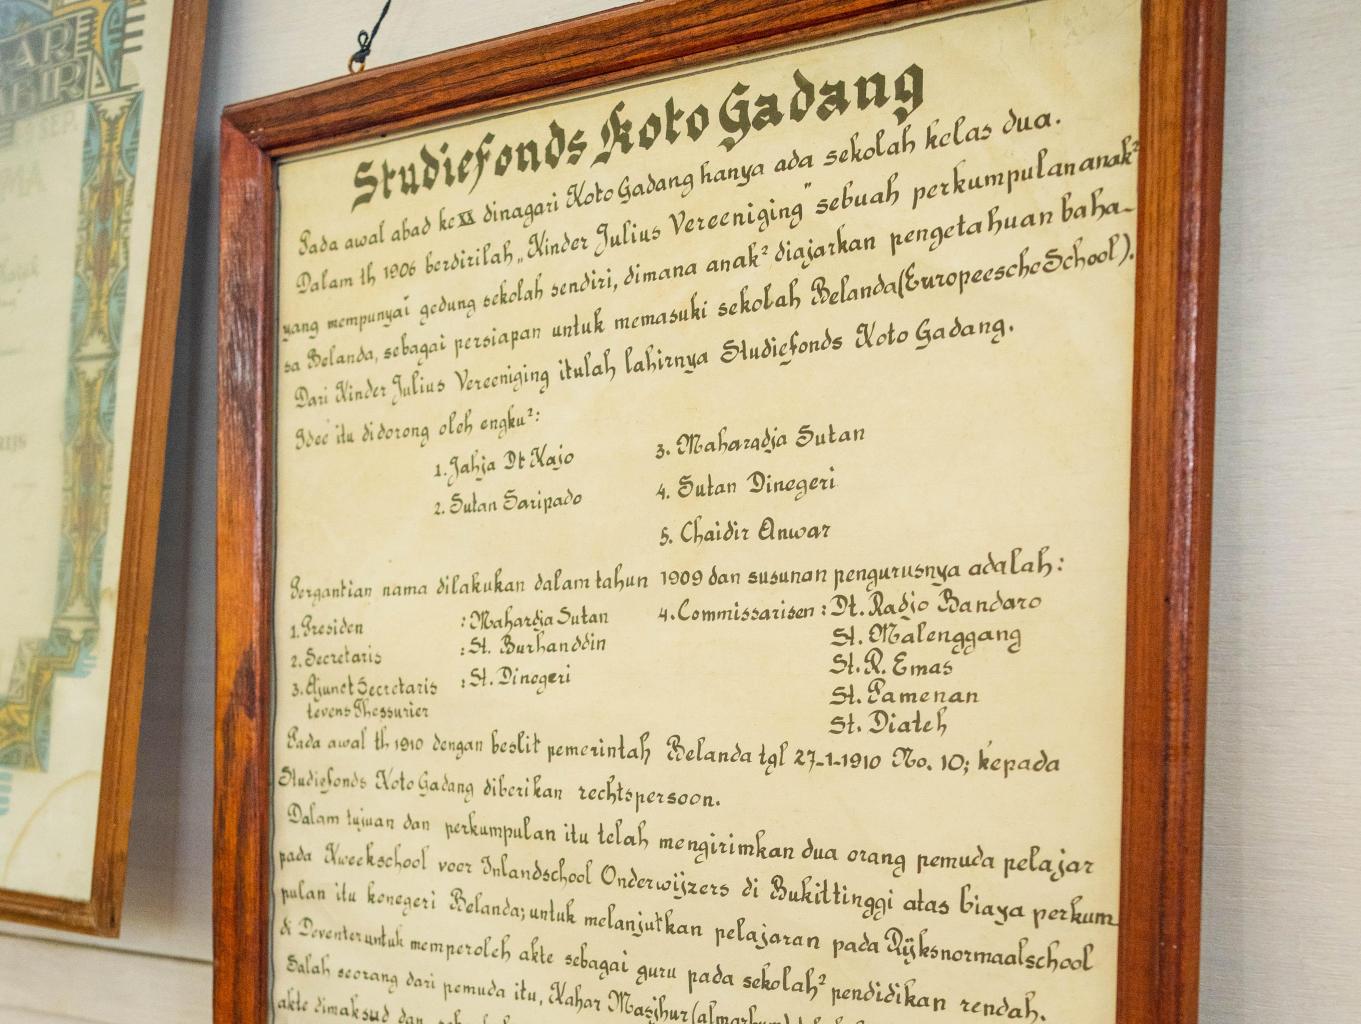 Studiefonds Koto Gadang
Pada awal abad ke XX dinagari Koto Gadang hanya ada sekolah kelas dua.
Dalam th 1906 berdirilah „Kinder Julius Vereeniging" sebuah perkumpulan anak²
yang mempunyai gedung sekolah sendiri, dimana anak² diajarkan pengetahuan baha-
sa Belanda, sebagai persiapan untuk memasuki sekolah Belanda (Europeesche School).
Dari Kinder Julius Vereeniging itulah lahirnya Studiefonds Koto Gadang.
Idee itu didorong oleh engku²:
1. Jahja Dt Kajo
2. Sutan Saripado
3. Mahardja Sutan
4. Sutan Dinegeri
5. Chaidir Anwar
Pergantian nama dilakukan dalam tahun 1909 dan susunan pengurusnya adalah:
1. Presiden : Mahardja Sutan
2. Secretaris : St. Burhanddin
3. Ajunct Secretaris : St. Dinegeri
tevens Thessurier
4. Commissarisen : Dt. Radjo Bandaro
St. Malenggang
St. R. Emas
St. Pamenan
St. Diateh
Pada awal th 1910 dengan beslit pemerintah Belanda tgl 27-1-1910 No. 10; kepada
Studiefonds Koto Gadang diberikan rechtspersoon.
Dalam tujuan dan perkumpulan itu telah mengirimkan dua orang pemuda pelajar
pada Kweekschool voor Inlandschool Onderwijzers di Bukittinggi atas biaya perkum
pulan itu kenegeri Belanda; untuk melanjutkan pelajaran pada Rijksnormaalschool
di Deventer untuk memperoleh akte sebagai guru pada sekolah² pendidikan rendah.
Salah seorang dari pemuda itu, Kahar Masjhur (almarhum)
akte dimaksud dan